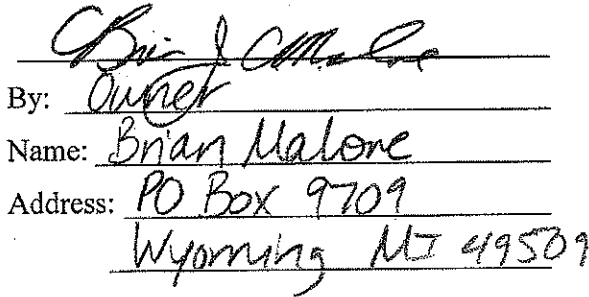 Brian J Malone
By: Owner
Name: Brian Malone
Address: PO Box 9709
Wyoming MI 49509